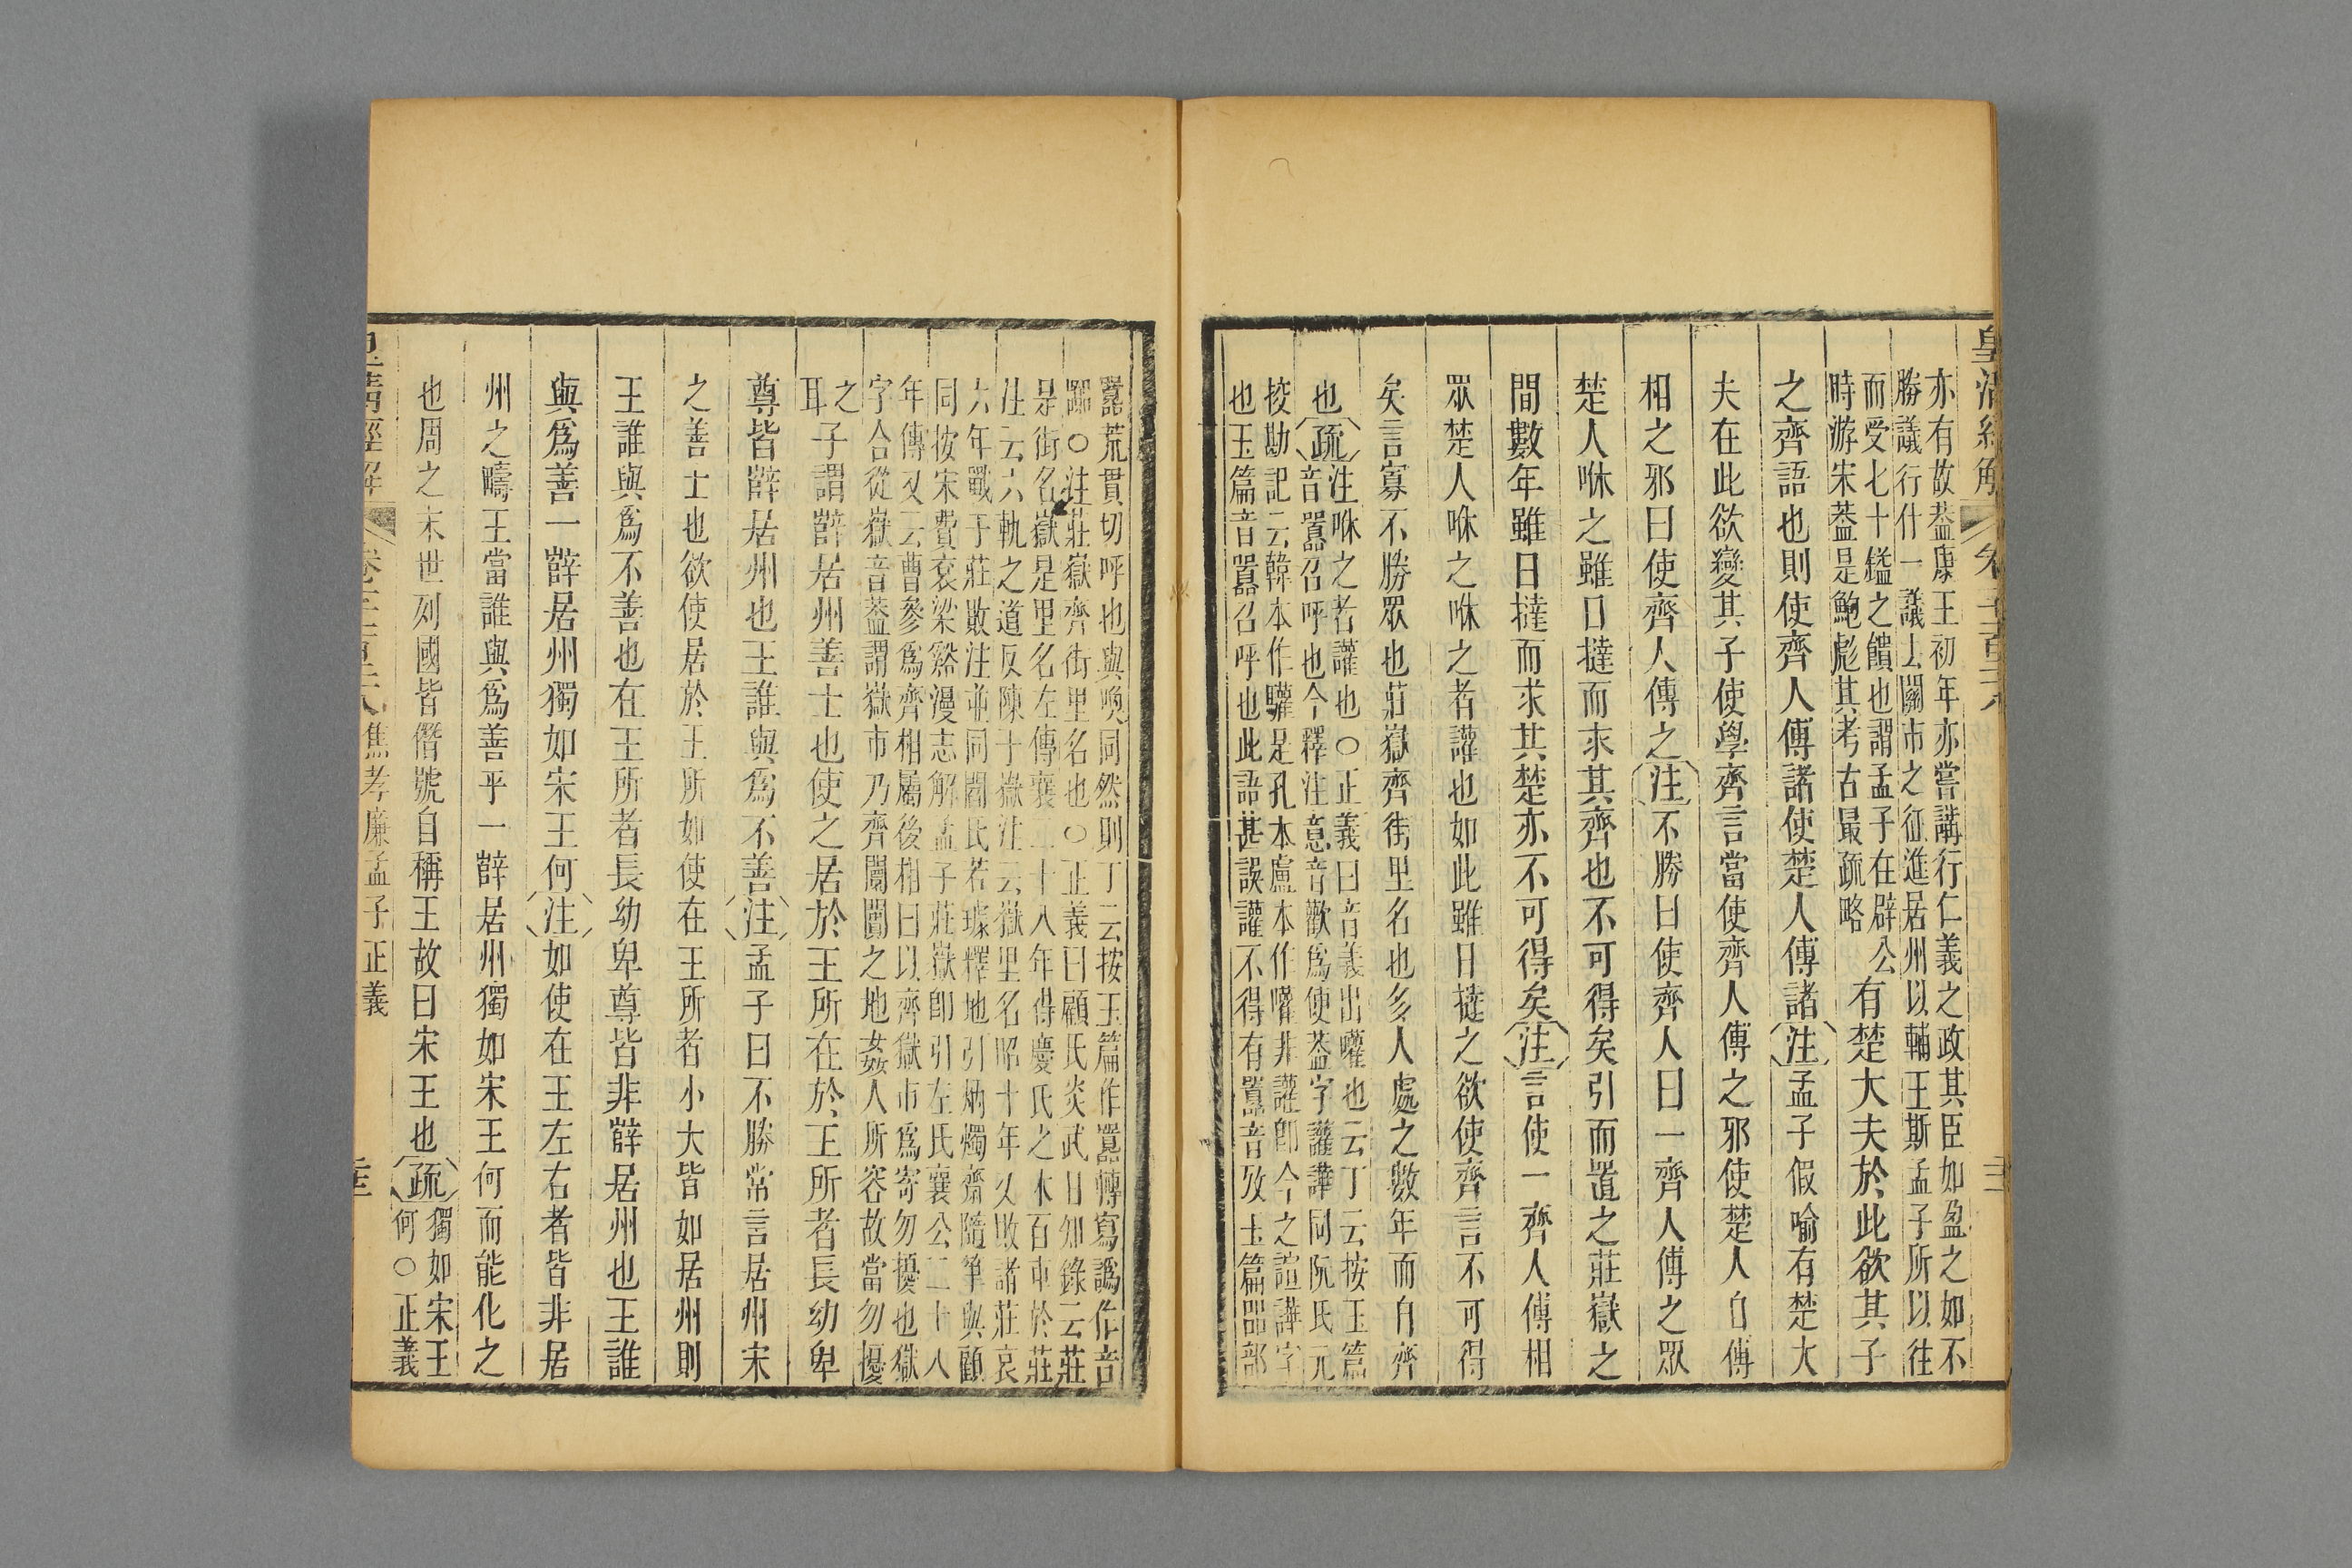 皇清經解
亦有故葢康王初年亦嘗講行仁義之政其臣如盈之如不
勝議行什一議去關市之征進居州以輔王斯孟子所以往
而受七十鎰之饋也謂孟子在辟公
時游宋葢是鮑彪其考古最疏略
有楚大夫於此欲其子
之齊語也則使齊人傅諸使楚人傅諸注孟子假喻有楚大
夫在此欲變其子使學齊言當使齊人傅之邪使楚人自傅
相之邪曰使齊人傅之注不勝曰使齊人曰一齊人傅之眾
楚人咻之雖日撻而求其齊也不可得矣引而置之莊嶽之
間數年雖日撻而求其楚亦不可得矣注言使一齊人傅相
眾楚人咻之咻之者讙也如此雖日撻之欲使齊言不可得
矣言寡不勝眾也莊嶽齊街里名也多人處之數年而自齊
也疏
注咻之者讙也○正義曰音義出嚾也云丁云按玉篇
音嚚召呼也今釋注意音歡爲便葢字讙譁同阮氏元
挍勘記云韓本作驩足孔本盧本作嚾非讙卽今之諠譁字
也玉篇音嚚召呼也此語甚誤讙不得有嚚音攷玉篇㗊部
嚚荒貫切呼也與喚同然則丁云按玉篇作嚚轉寫譌作音
嚚○注莊嶽齊街里名也○正義曰顧氏炎武日知錄云莊
是街名嶽是里名左傳襄二十八年得慶氏之木百車於莊
注云六軌之道反陳于嶽注云嶽里名昭十年又敗諸莊哀
六年戰于莊敗注並同閻氏若璩釋地引炳燭齋隨筆與顧
同按宋費衮梁谿漫志解孟子莊嶽卽引左氏襄公二十八
年傳又云曹參爲齊相屬後相曰以齊獄市爲寄勿擾也獄
字合從嶽音葢謂嶽市乃齊闤闠之地姦人所容故當勿擾
之
耳
子謂薛居州善士也使之居於王所在於王所者長幼卑
尊皆薛居州也王誰與爲不善注孟子曰不勝常言居州宋
之善士也欲使居於王所如使在王所者小大皆如居州則
王誰與爲不善也在王所者長幼卑尊皆非薛居州也王誰
與爲善一薛居州獨如宋王何注如使在王左右者皆非居
州之疇王當誰與爲善乎一薛居州獨如宋王何而能化之
也周之末世列國皆僭號自稱王故曰宋王也疏
獨如宋王
何○正義
皇清經解 焦孝廉孟子正義